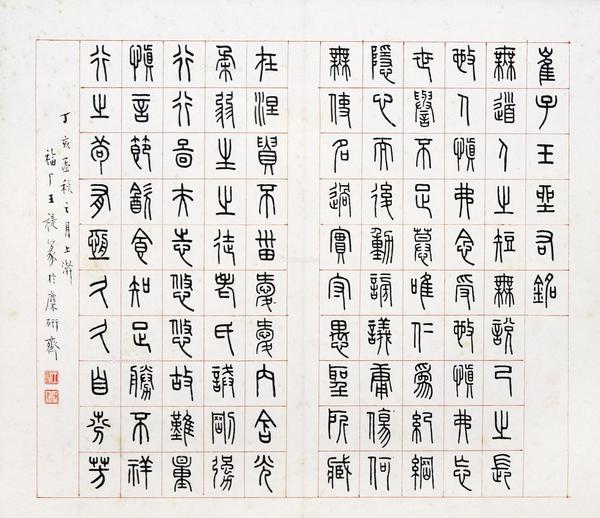 崔子玉坐右銘
無道人之短無說己之長
施人慎弗念受施慎弗忘
世譽不足慕唯仁為紀綱
隱心而後動謗議庸傷何
無使名過實守愚聖所臧
在涅貴不淄曖曖內含光
柔弱生之徒老氏誡剛彊
行行鄙夫志悠悠故難量
慎言節飲食知足勝不祥
行之苟有恆久久自芬芳
丁亥孟秋之月上澣
福厂王禔篆於麋研齋